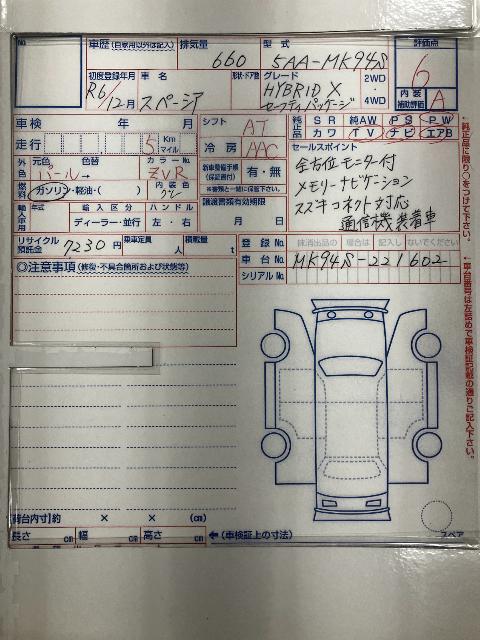 No.
車歴(自家用以外は記入)
排気量 660
型式 5AA-MK94S
評価点 6
初度登録年月 R6/12月
車名 スペーシア
形状・ドア数
グレード HYBRID X
セーフティパッケージ
2WD・4WD
内装補助評価 A
車検 年 月
走行 5 Km マイル
シフト AT
冷房 AAC
純正品 SR 純AW PS PW
カワ TV ナビ エアB
外色 元色 パール→ 色替
カラーNo. ZVR
燃料 ガソリン・軽油・( )
内装色 グレー
新車整備手帳(保証書付) 有・無
※書類と一緒に保管下さい。
セールスポイント
全方位モニター付
メモリーナビゲーション
スズキコネクト対応
通信機装着車
輸入車用 年式 輸入区分 ハンドル
ディーラー・並行 左・右
譲渡書類有効期限
月 日
リサイクル預託金 7230円
乗車定員 人
積載量 t
登録No. 抹消出品の場合は記入しないでください
車台No. MK94S-221602
シリアルNo.
◎注意事項(修復・不具合箇所および状態等)
↑純正品に限り○をつけて下さい。
↑車台番号は左詰めで車検証記載の通りご記入下さい。
荷台内寸)約 × × (cm)
長さ cm 幅 cm 高さ cm
←(車検証上の寸法)
スペア